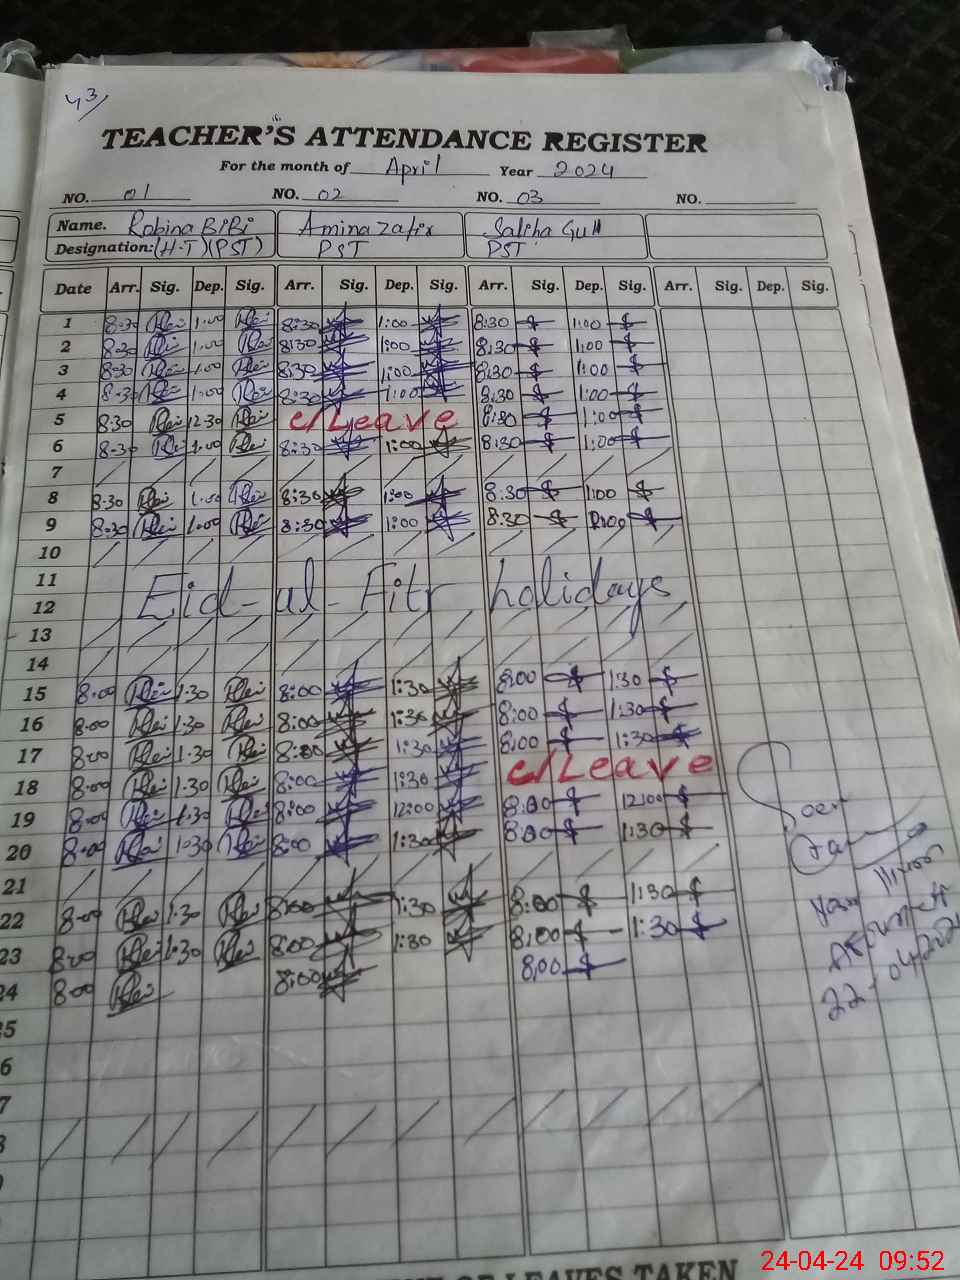 43
TEACHER'S ATTENDANCE REGISTER
For the month of April Year 2024
NO. 01 NO. 02 NO. 03 NO.
Name. Robina BiBi Amina Zafir Saliha Gull
Designation: (H-T) (PST) PST PST
Date Arr. Sig. Dep. Sig. Arr. Sig. Dep. Sig. Arr. Sig. Dep. Sig. Arr. Sig. Dep. Sig.
1 8:30 1:00 8:30 1:00 8:30 1:00
2 8:30 1:00 8:30 1:00 8:30 1:00
3 8:30 1:00 8:30 1:00 8:30 1:00
4 8:30 1:00 8:30 1:00 8:30 1:00
5 8:30 12:30 c/Leave 8:30 1:00
6 8:30 1:00 8:30 1:00 8:30 1:00
7
8 8:30 1:00 8:30 1:00 8:30 1:00
9 8:30 1:00 8:30 1:00 8:30
10
11 Eid-ul-Fitr holidays
12
13
14
15 8:00 1:30 8:00 1:30 8:00 1:30
16 8:00 1:30 8:00 1:30 8:00 1:30
17 8:00 1:30 8:00 1:30 8:00 1:30
18 8:00 1:30 8:00 1:30 c/Leave
19 8:00 1:30 8:00 12:00 8:00 12:00
20 8:00 1:30 8:00 1:30 8:00 1:30
21
22 8:00 1:30 8:00 1:30 8:00 1:30
23 8:00 1:30 8:00 1:30 8:00 1:30
24 8:00 8:00 8:00
5
6
7
8
22-04-2024
OF LEAVES TAKEN
24-04-24 09:52